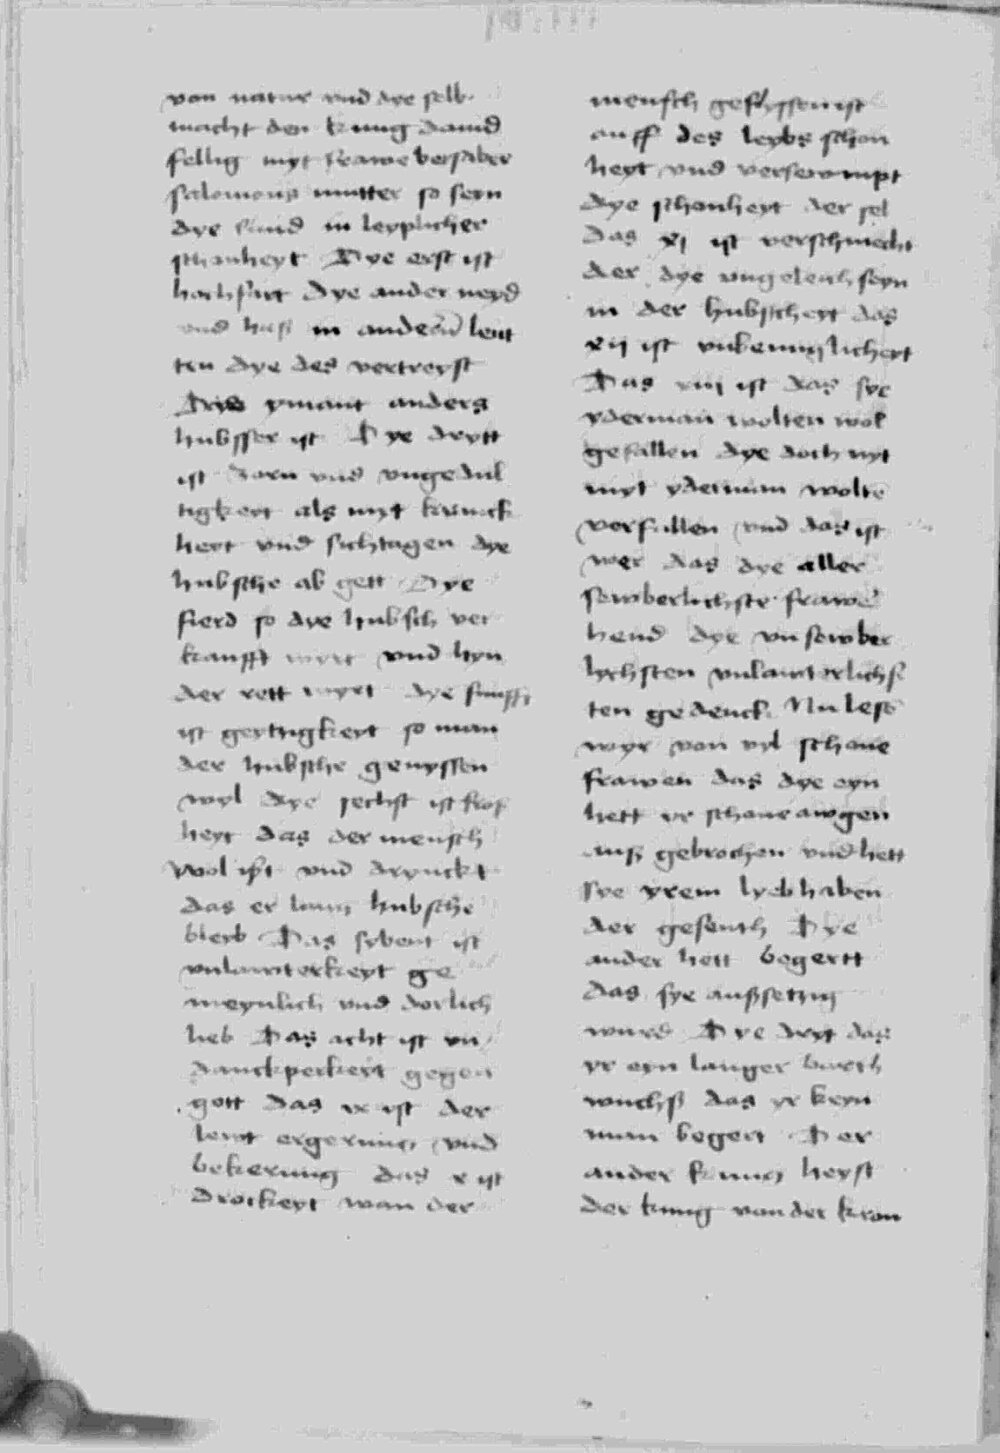 von natur vnd dye selb
macht den kunig dauid
fellig myt frawe bersaber
salomons mutter so seyn
dye sund in leyplicher
schonheyt Dye erst ist
hochfart dye ander neyd
vnd haß in andern leut
ten dye des vertreyst
ymant anders
hubsser ist Dye drytt
ist zorn vnd vngedul
tigkeyt als myt kranck
heyt vnd sichtagen dye
hubsche ab gett Dye
fierd so dye hubsch ver
kaufft wyrt vnd hyn
der rett wyrt dye funfft
ist geytzigkeyt so man
der hubsche genyssen
wyl dye sechst ist froß
heyt das der mensch
wol ist vnd drynckt
das er lang hubsche
bleyb Das sybent ist
vnlawterkeyt ge
meynlich vnd dorlich
lieb Das acht ist vn
danckperkeyt gegen
gott das ix ist der
lewt ergerung vnd
bekerung das x ist
drockeyt wan der
mensch geflyssen ist
auff des leybs schon
heyt vnd versewmpt
dye schonheyt der sel
das xj ist verschmecht
der dye vngeleich seyn
in der hubscheyt das
xij ist vnkeuniglicheyt
Das xiij ist das sye
yderman wolten wol
gefallen dye doch nyt
myt yderman wolte
verfallen vnd das ist
wer das dye aller
sewberlichste frawe
hend dye vnsewber
lychsten vnlawterlichs
ten gedenck Nu lesß
wyr von vyl schone
frawen das dye eyn
hett yr schone awgen
auß gebrochen vnd hett
sye yrem lyebhaben
der gesenth Dye
ander hett begertt
das sye außsetzig
wurd Dye dryt das
yr eyn langer barth
wuchß das yr keyn
man begert Der
ander kunig heyst
der kunig von der kron